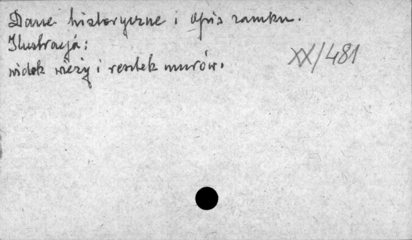 Dane historyczne i opis zamku.
Ilustracja:
widok wieży i resztek murów.
XX/481